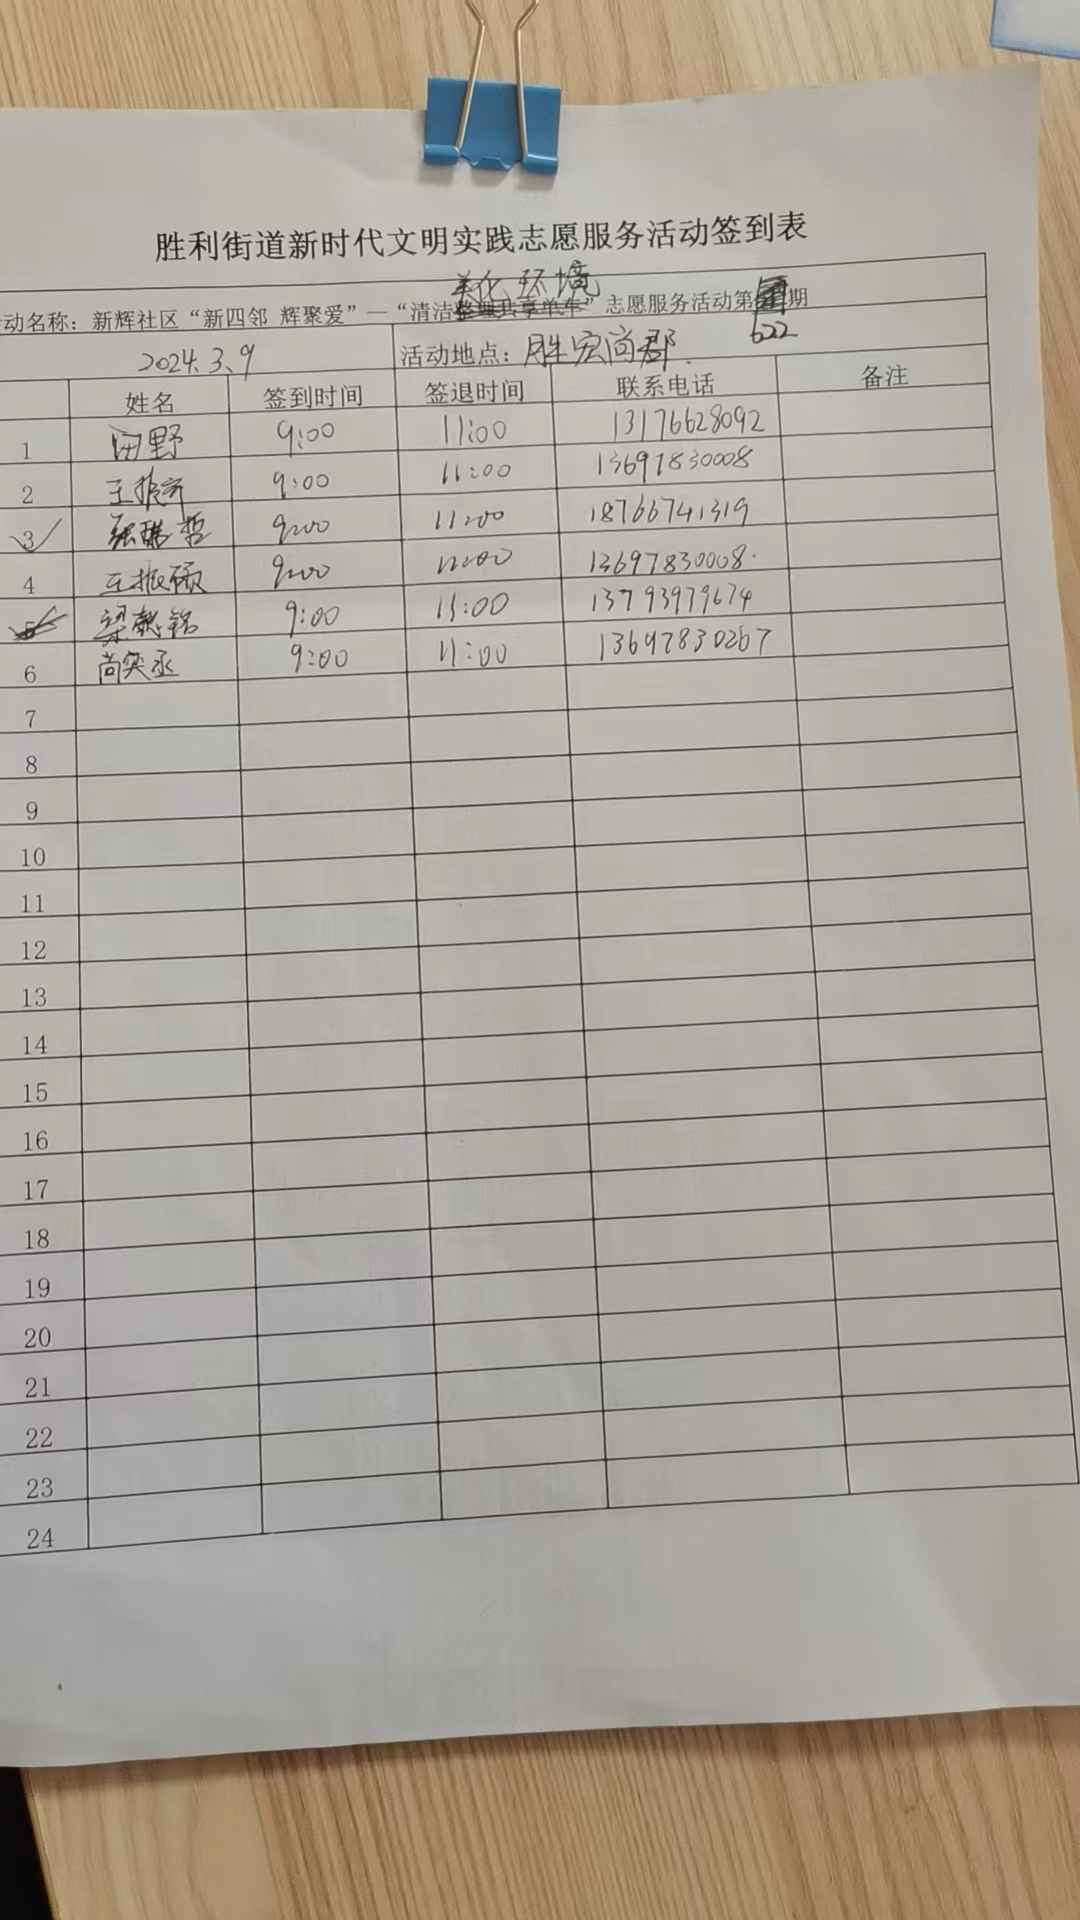 胜利街道新时代文明实践志愿服务活动签到表
美化环境
动名称：新辉社区“新四邻 辉聚爱”—“清洁整理共享单车”志愿服务活动第期
622
2024.3.9 活动地点：胜宏尚郡.
姓名 签到时间 签退时间 联系电话 备注
1 田野 9:00 11:00 13176628092
2 王振 9:00 11:00 13697830008
3 张 哲 9:00 11:00 18766741319
4 王振硕 9:00 11:00 13697830008.
5 梁懿铭 9:00 11:00 13793979674
6 尚奕丞 9:00 11:00 13697830267
7
8
9
10
11
12
13
14
15
16
17
18
19
20
21
22
23
24